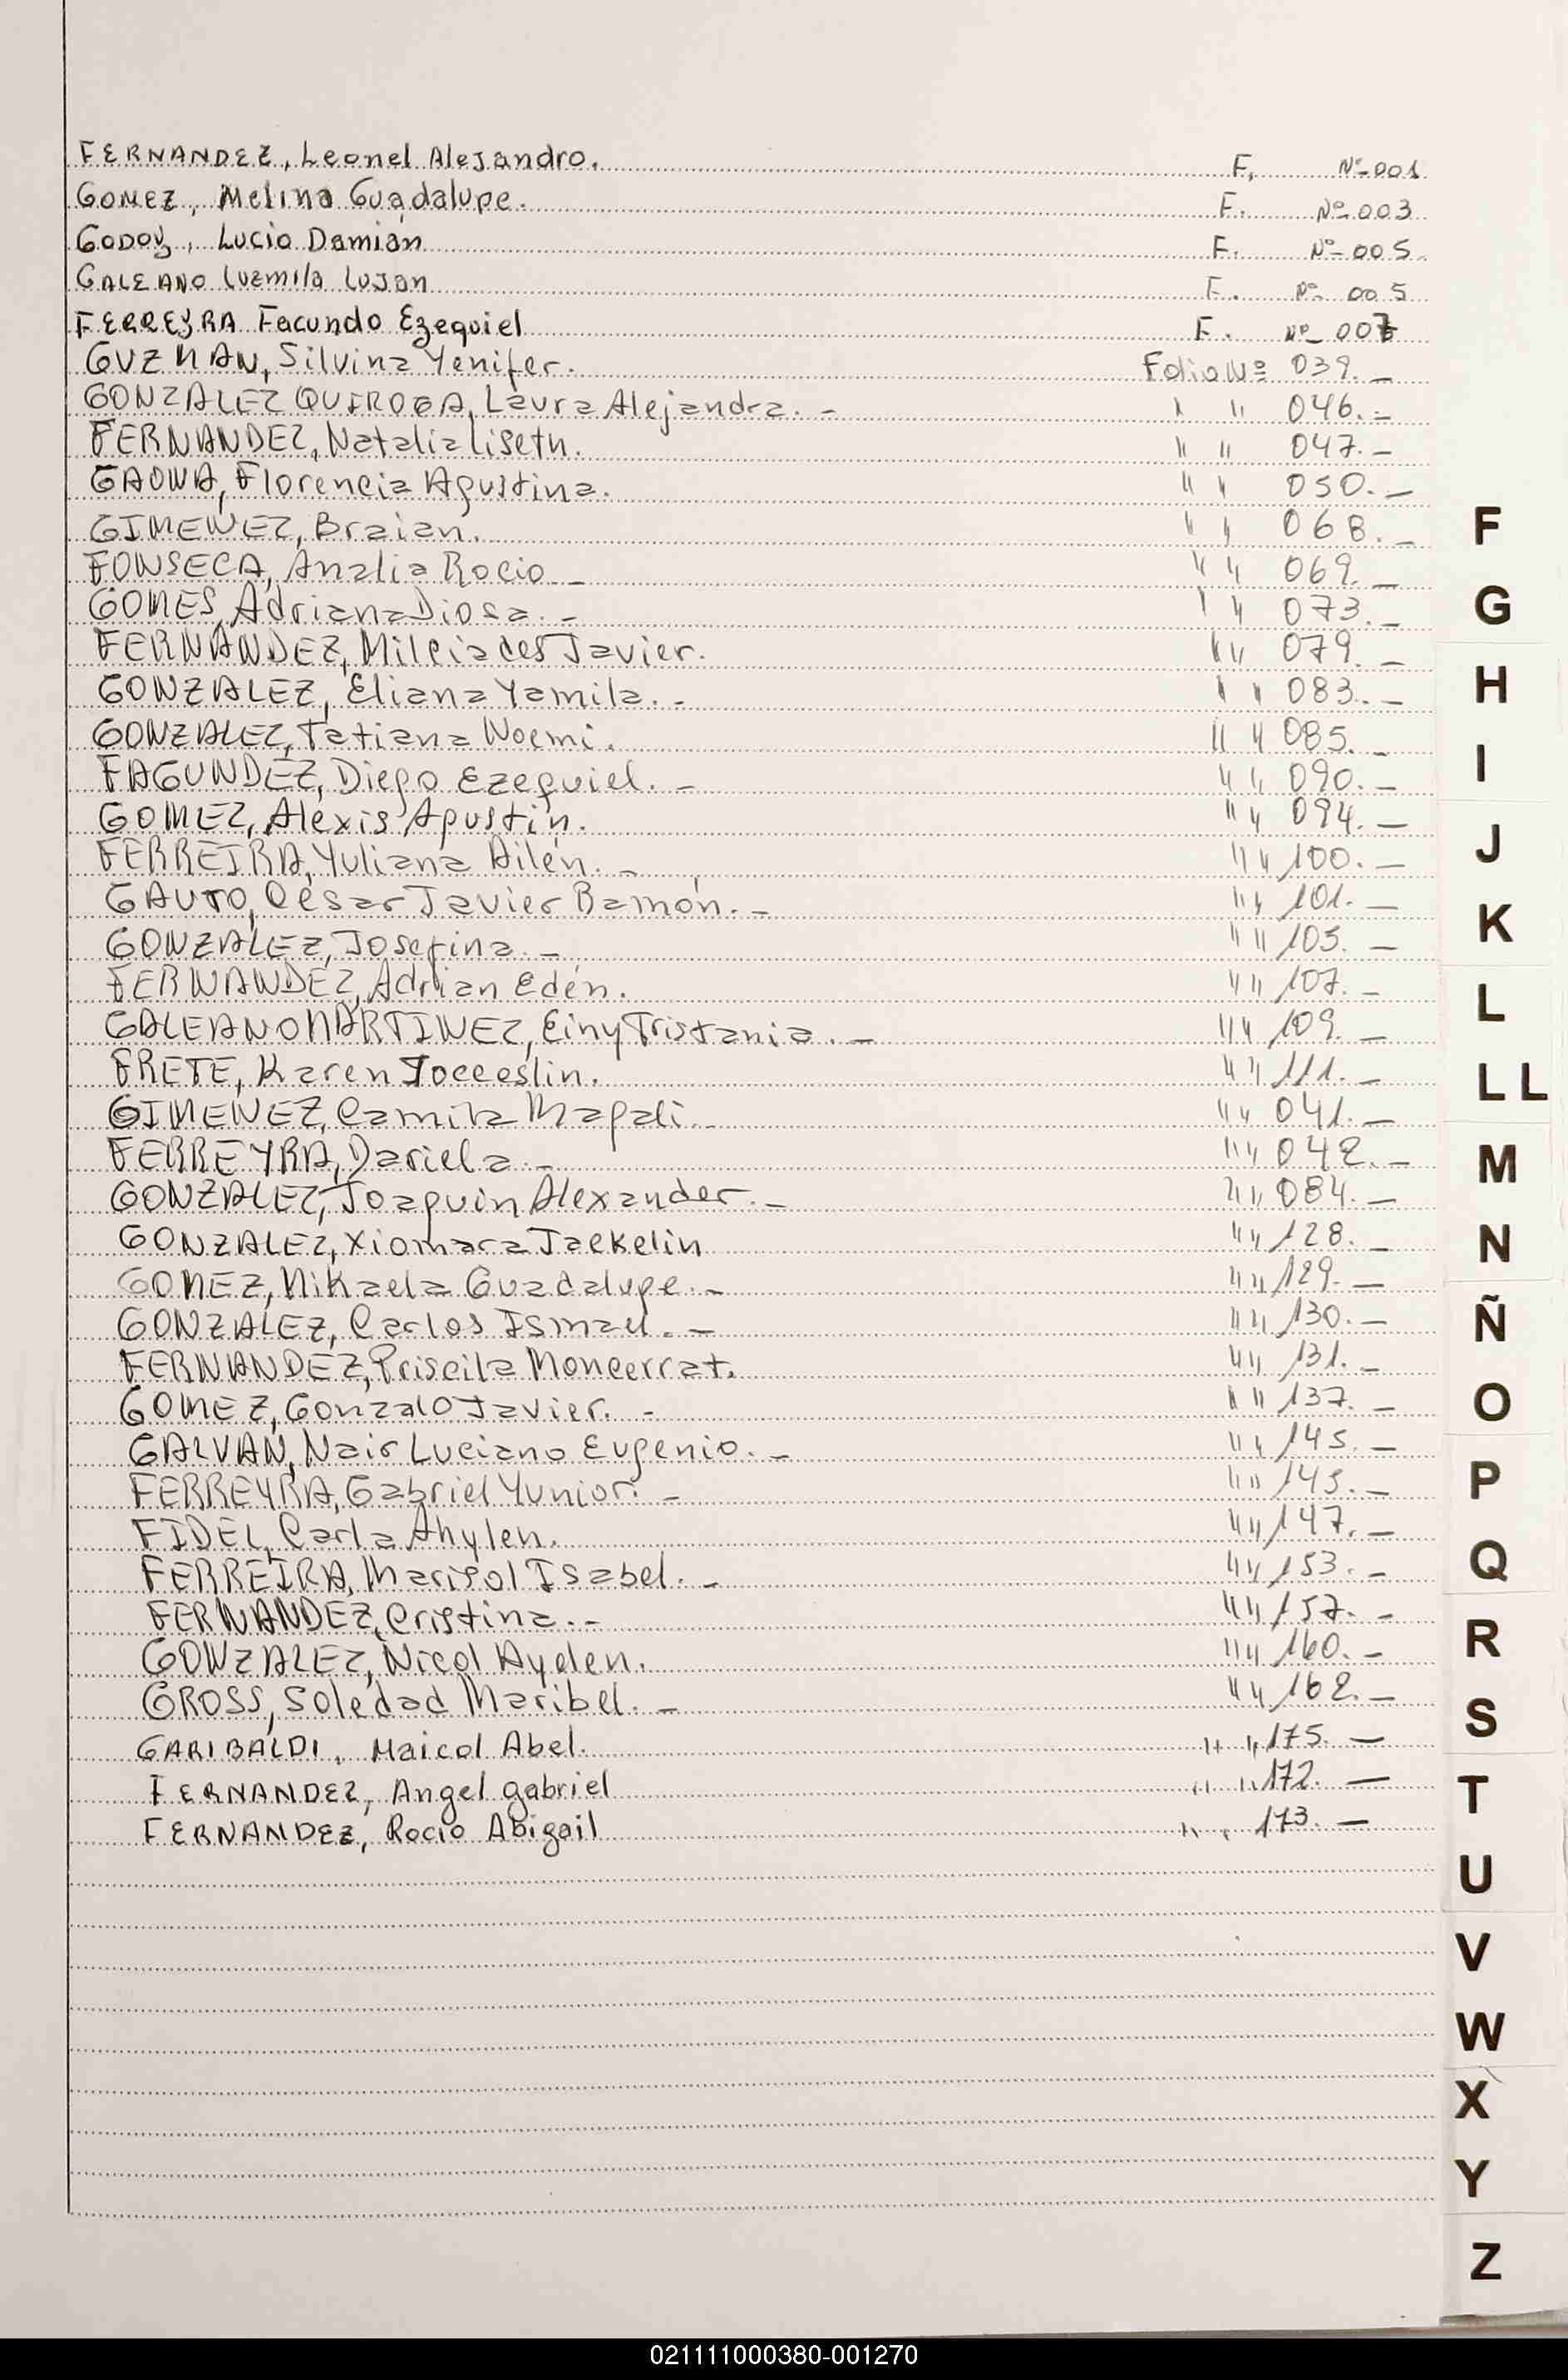 FERNANDEZ, Leonel Alejandro. F. Nº 001
GOMEZ, Melina Guadalupe. F. Nº 003
GODOY, Lucio Damián F. Nº 005
GALEANO Luzmila Lujan F. Nº 005
FERREYRA Facundo Ezequiel F. Nº 007
GUZMAN, Silvina Yenifer. Folio Nº 039. —
GONZALEZ QUIROGA, Laura Alejandra. - " " 046. -
FERNANDEZ, Natalia Liseth. " " 047. -
GAONA, Florencia Agustina. " " 050. —
GIMENEZ, Braian. " " 068. —
FONSECA, Analia Rocio — " " 069. —
GOMES, Adriana Diosa. - " " 073. —
FERNÁNDEZ, Milciades Javier. " " 079. —
GONZALEZ, Eliana Yamila. - " " 083. —
GONZALEZ, Tatiana Noemi. " " 085. -
FAGUNDEZ, Diego Ezequiel. - " " 090. -
GOMEZ, Alexis Agustín. " " 094. —
FERREIRA, Yuliana Ailén. - " " 100. —
GAUTO, César Javier Ramón. - " " 101. —
GONZALEZ, Josefina. - " " 105. —
FERNANDEZ, Adrian Edén. " " 107. -
GALEANO MARTINEZ, Einy Tristania. — " " 109. —
FRETE, Karen Jocceslin. " " 111. —
GIMENEZ, Camila Magali. " " 041. —
FERREYRA, Dariela. - " " 042. —
GONZALEZ, Joaquin Alexander. - " " 084. —
GONZALEZ, Xiomara Jaekelin " " 128. —
GOMEZ, Mikaela Guadalupe. - " " 129. —
GONZALEZ, Carlos Ismael. - " " 130. —
FERNANDEZ, Priscila Moncerrat. " " 131. -
GOMEZ, Gonzalo Javier. - " " 137. —
GALVAN, Nair Luciano Eugenio. - " " 145. —
FERREYRA, Gabriel Yunior. - " " 145. —
FIDEL, Carla Ahylen. " " 147. —
FERREIRA, Marisol Isabel. - " " 153. -
FERNANDEZ, Cristina. - " " 157. -
GONZALEZ, Nicol Ayelen. " " 160. -
GROSS, Soledad Maribel. - " " 162. —
GARIBALDI, Maicol Abel. " " 175. —
FERNANDEZ, Angel gabriel " " 172. —
FERNANDEZ, Rocio Abigail " " 173. —
F
G
H
I
J
K
L
LL
M
N
Ñ
O
P
Q
R
S
T
U
V
W
X
Y
Z
021111000380-001270